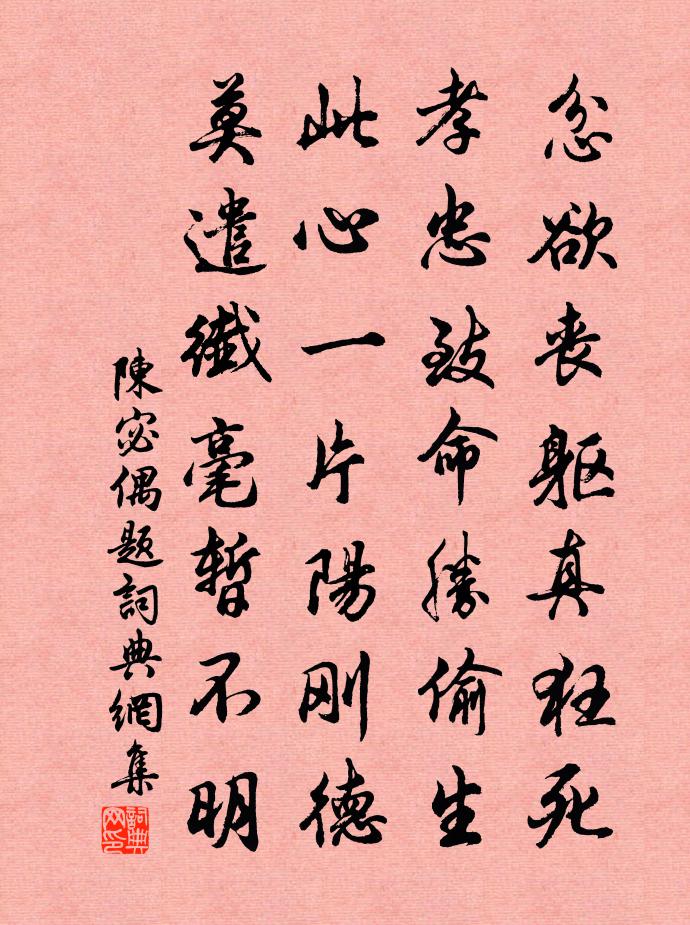 忿欲丧躯真狂死
孝忠致命勝偷生
此心一片陽刚德
莫遣纖毫暫不明
陳宓偶題詞典網集
詞典网印